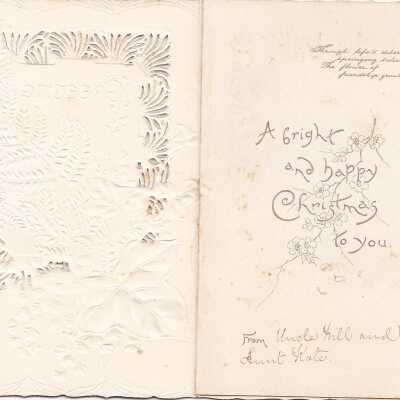 Through life's
springing
The flower of
friendship
A bright
and happy
Christmas
to you.
From Uncle Will and
Aunt Kate.